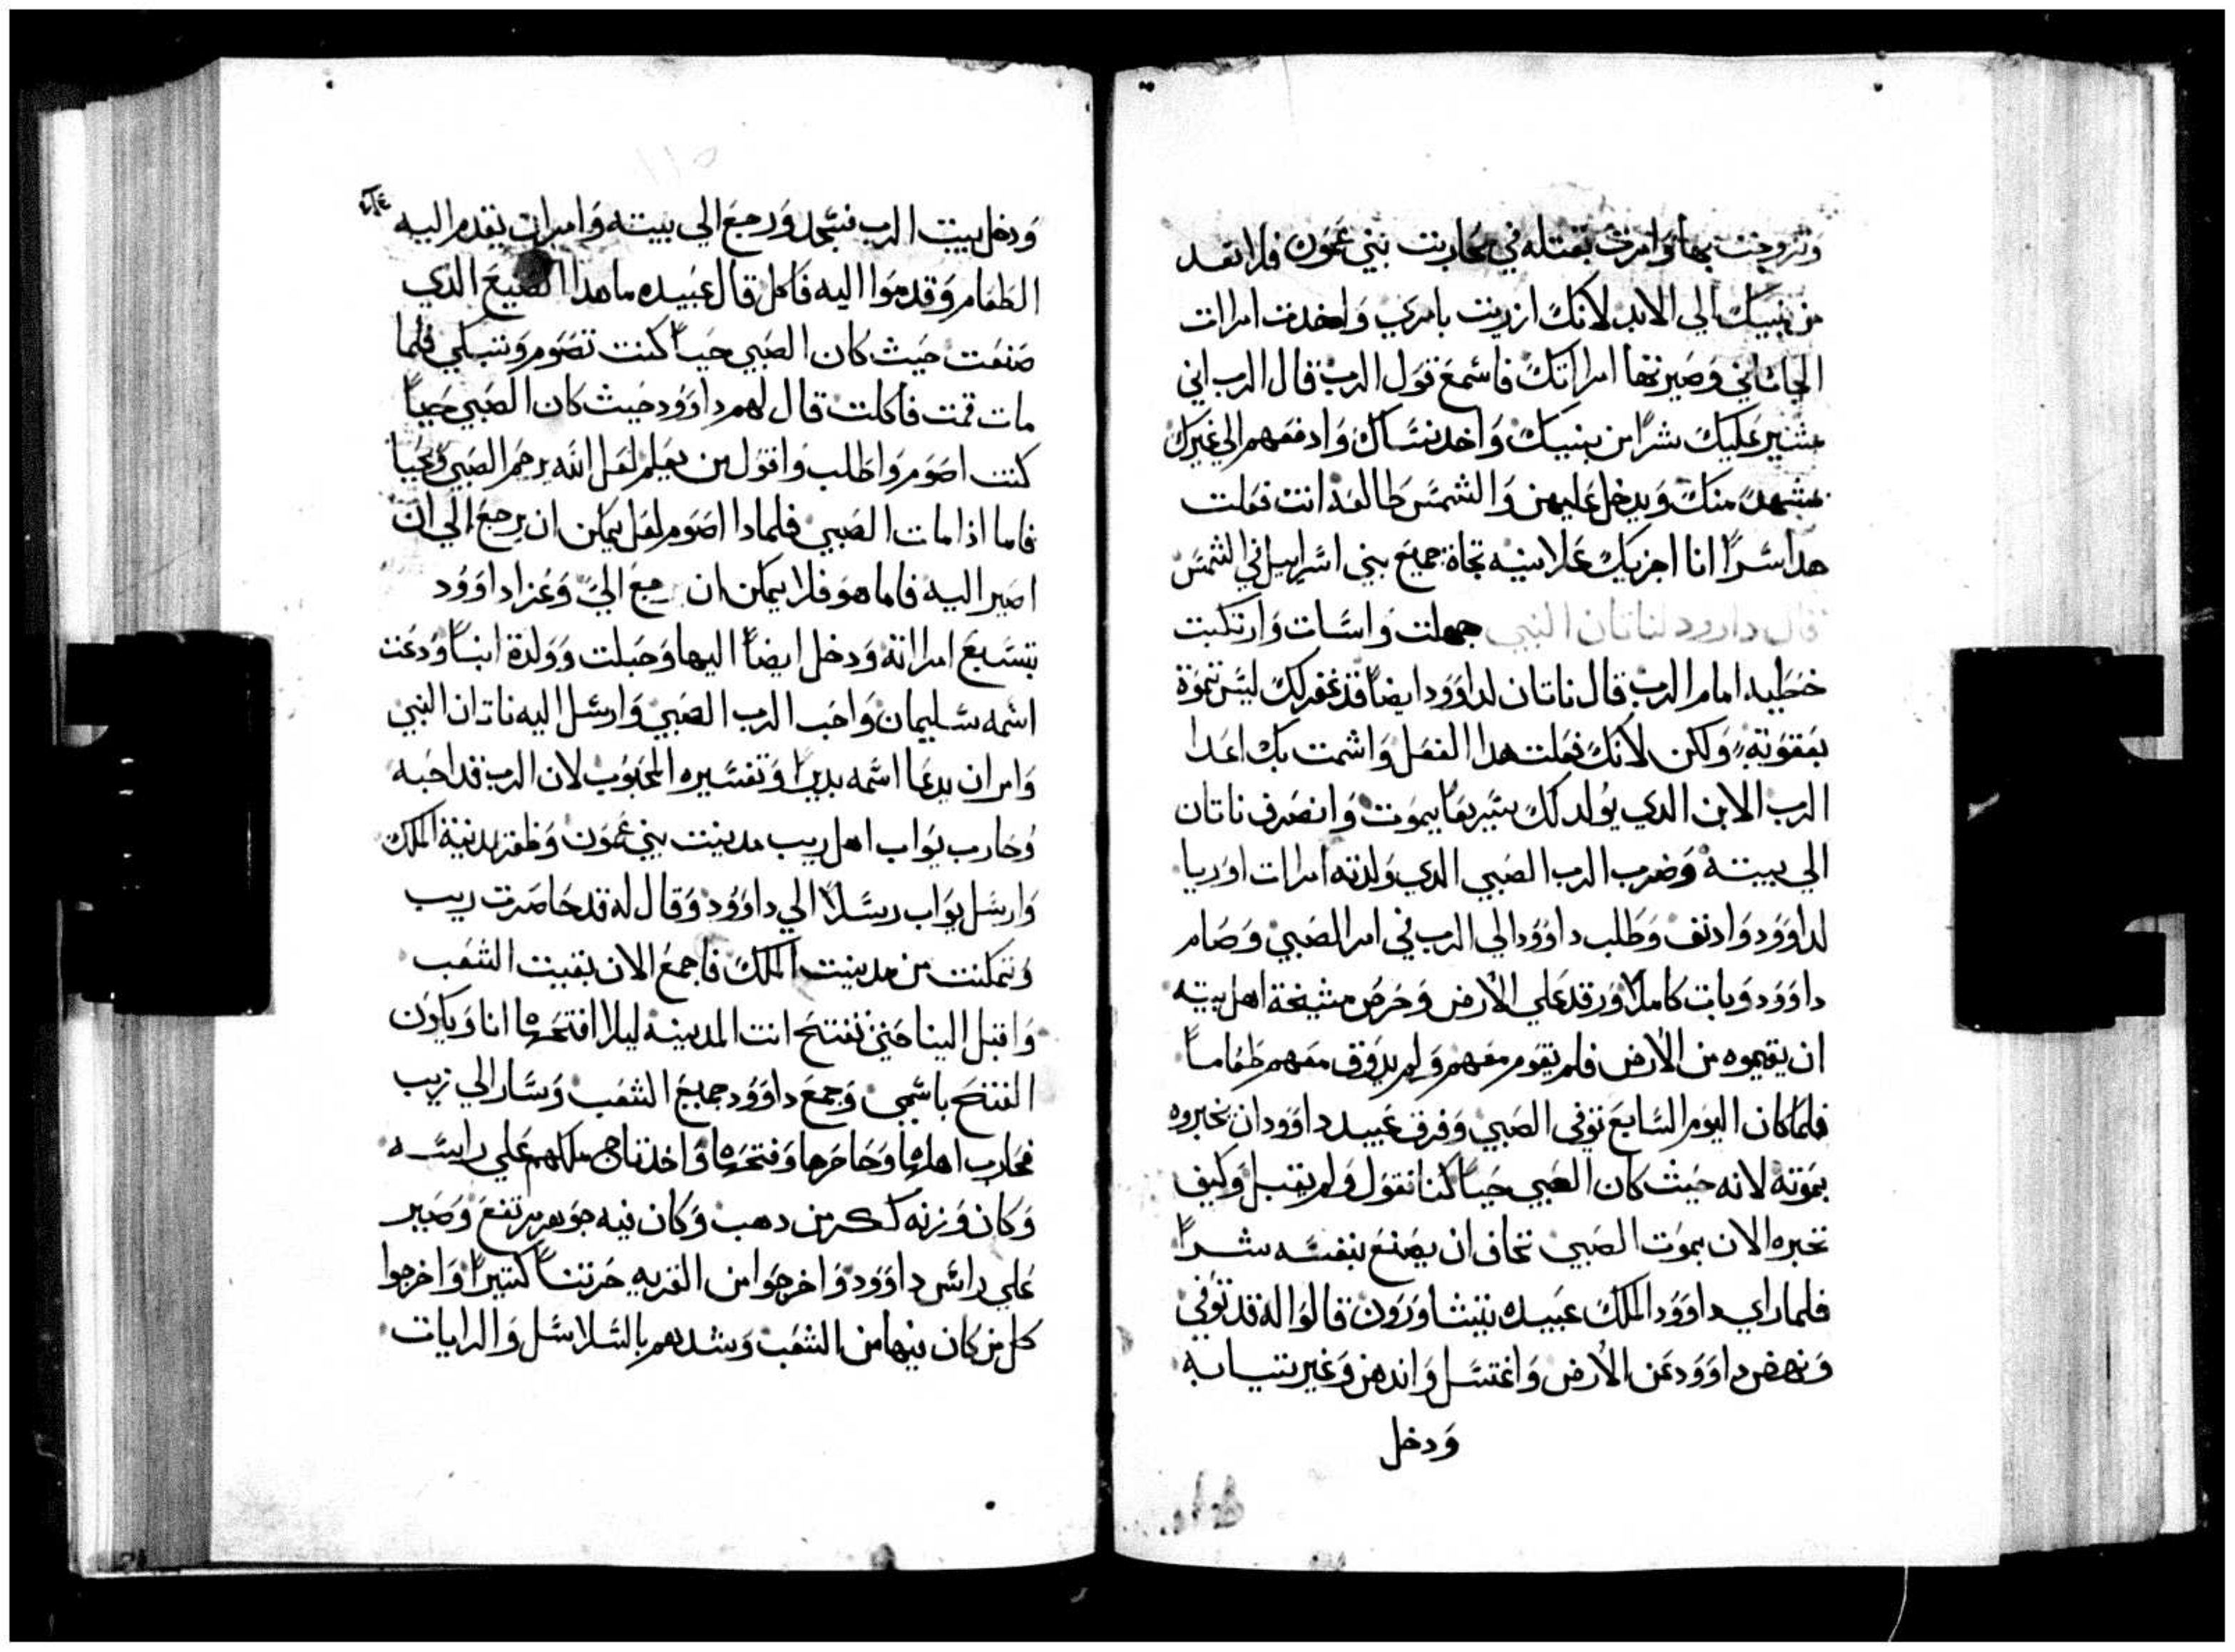 وتزوجت بها وامرت بقتله في محاربت بني عمون فلا تعد
من بنيك الي الابد لانك ازريت بامري واخدت امرات
الحاتاني وصيرتها امراتك فاسمع قول الرب قال الرب اني
مثير عليك شرًا من بنيك واخد نساك وادفعهم الي غيرك
بمشهد منك ويدخل عليهن والشمس طالعه انت فعلت
هدا سرًا انا اجزيك علانيه تجاة جميع بني اسراييل في الشمس
قال داوود لناتان النبي جهلت واسات وارتكبت
خطيه امام الرب قال ناتان لداوود ايضًا قد غفر لك ليس تموة
بعقوبة ولكن لانك فعلت هدا الفعل واشمت بك اعدا
الرب الابن الدي يولد لك سريعًا يموت وانصرف ناتان
الي بيته وضرب الرب الصبي الدي ولدته امرات اوريا
لداوود وادنف وطلب داوود الي الرب في امر الصبي وصام
داوود وبات كاملًا ورقد علي الارض وحرص مشيخة اهل بيته
ان يقيموه من الارض فلم يقوم معهم ولم يدوق معهم طعامًا
فلما كان اليوم السابع توفي الصبي وفرق عبيد داوود ان تخبروه
بموته لانه حيث كان الصبي حيًا كنا نقول ولم يقبل وكيف
نخبره الان بموت الصبي نخاف ان يصنع بنفسه شرًا
فلما راي داوود الملك عبيده يتشاورون قالوا له قد توفي
ونهض داوود عن الارض واغتسل واندهن وغير تيابه
ودخل
ودخل بيت الرب فسجد ورجع الي بيته وامر ان يقدم اليه
الطعام وقدموا اليه فاكل قال عبيده ما هدا الصنيع الدي
صنعت حيث كان الصبي حيًا كنت تصوم وتبكي فلما
مات قمت فاكلت قال لهم داوود حيث كان الصبي حيًا
كنت اصوم واطلب واقول من يعلم لعل الله يرحم الصبي ويحيا
فاما اذا مات الصبي فلمادا اصوم لعل يمكن ان يرجع الي ان
اصير اليه فاما هو فلا يمكن ان رجع الي وعزا داوود
بتسبع امراته ودخل ايضًا اليها وحبلت وولدة ابنًا ودعت
اسمه سليمان واحب الرب الصبي وارسل اليه ناتان النبي
وامر ان يدعا اسمه بديرًا وتفسيره المحبوب لان الرب قد احبه
وحارب يواب اهل ريب مدينت بني عمون وظفر بمدينة الملك
وارسل يواب رسلًا الي داوود وقال له قد حاصرت ريب
وتمكنت من مدينت الملك فاجمع الان بقيت الشعب
واقبل الينا حتي تفتتح انت المدينه ليلا افتحها انا ويكون
الفتح باسمي وجمع داوود جميع الشعب وسار الي ريب
فحارب اهلها وحاصرها وفتحها واخد تاج ملكهم علي راسه
وكان وزنه ككر من دهب وكان فيه جوهر مرتفع وصير
علي راس داوود واخرجوا من القريه حرتنًا كتيرًا واخرجوا
كل من كان فيها من الشعب وشدهم بالسلاسل والرايات